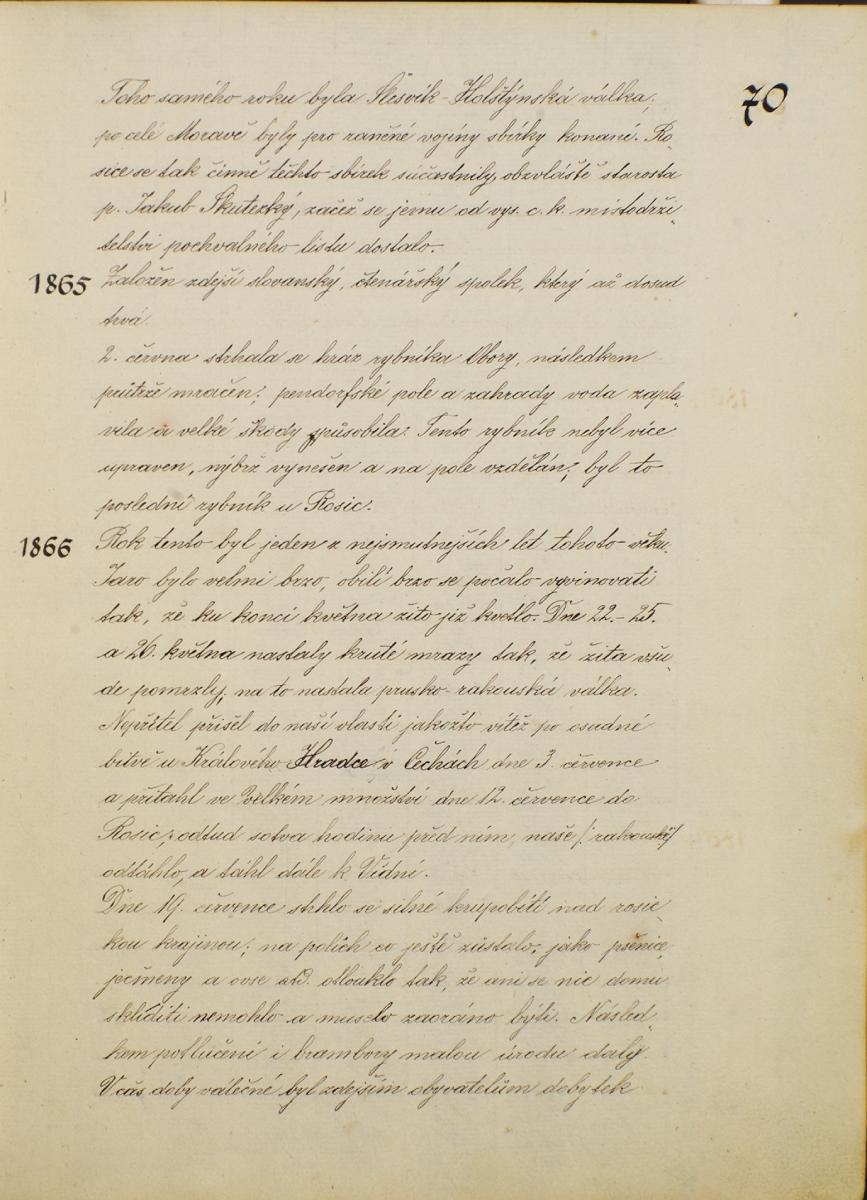 70
Toho samého roku byla Šlesvik-Holštýnská válka;
po celé Moravě byly pro raněné vojíny sbírky konané. Ro-
sice se tak činně těchto sbírek súčastnily, obzvláště starosta
p. Jakub Skutezký, začež se jemu od vys. c. k. místodrži-
telství pochvalného listu dostalo.
1865 Založen zdejší slovanský, čtenářský spolek, který až dosud
trvá.
2. června strhala se hráz rybníka Obory, následkem
průtrže mračen; pendorfské pole a zahrady voda zapla-
vila a velké škody způsobila. Tento rybník nebyl více
upraven, nýbrž vynešen a na pole vzdělán; byl to
poslední rybník u Rosic.
1866 Rok tento byl jeden z nejsmutnejších let tohoto věku.
Jaro bylo velmi brzo, obilí brzo se počalo vyvinovati
tak, že ku konci května žito již kvetlo. Dne 22.-25.
a 26. května nastaly kruté mrazy tak, že žita všu-
de pomrzly; na to nastala prusko-rakouská válka.
Nepřítel přišel do naší vlasti jakožto vítěz po osudné
bitvě u Králového Hradce v Čechách dne 3. července
a přitáhl ve velkém množství dne 12. července do
Rosic, odtud sotva hodinu před ním naše /: rakouské/
odtáhlo, a táhl dále k Vídni.
Dne 19. července strhlo se silné krupobití nad rosic-
kou krajinou; na polích co ještě zůstalo, jako pšenice,
ječmeny a ovse atd. otlouklo tak, že ani se nic domu
skliditi nemohlo a muselo zaoráno býti. Násled-
kem potlučení i brambory malou úrodu daly.
V čas doby válečné byl zdejším obyvatelům dobytek